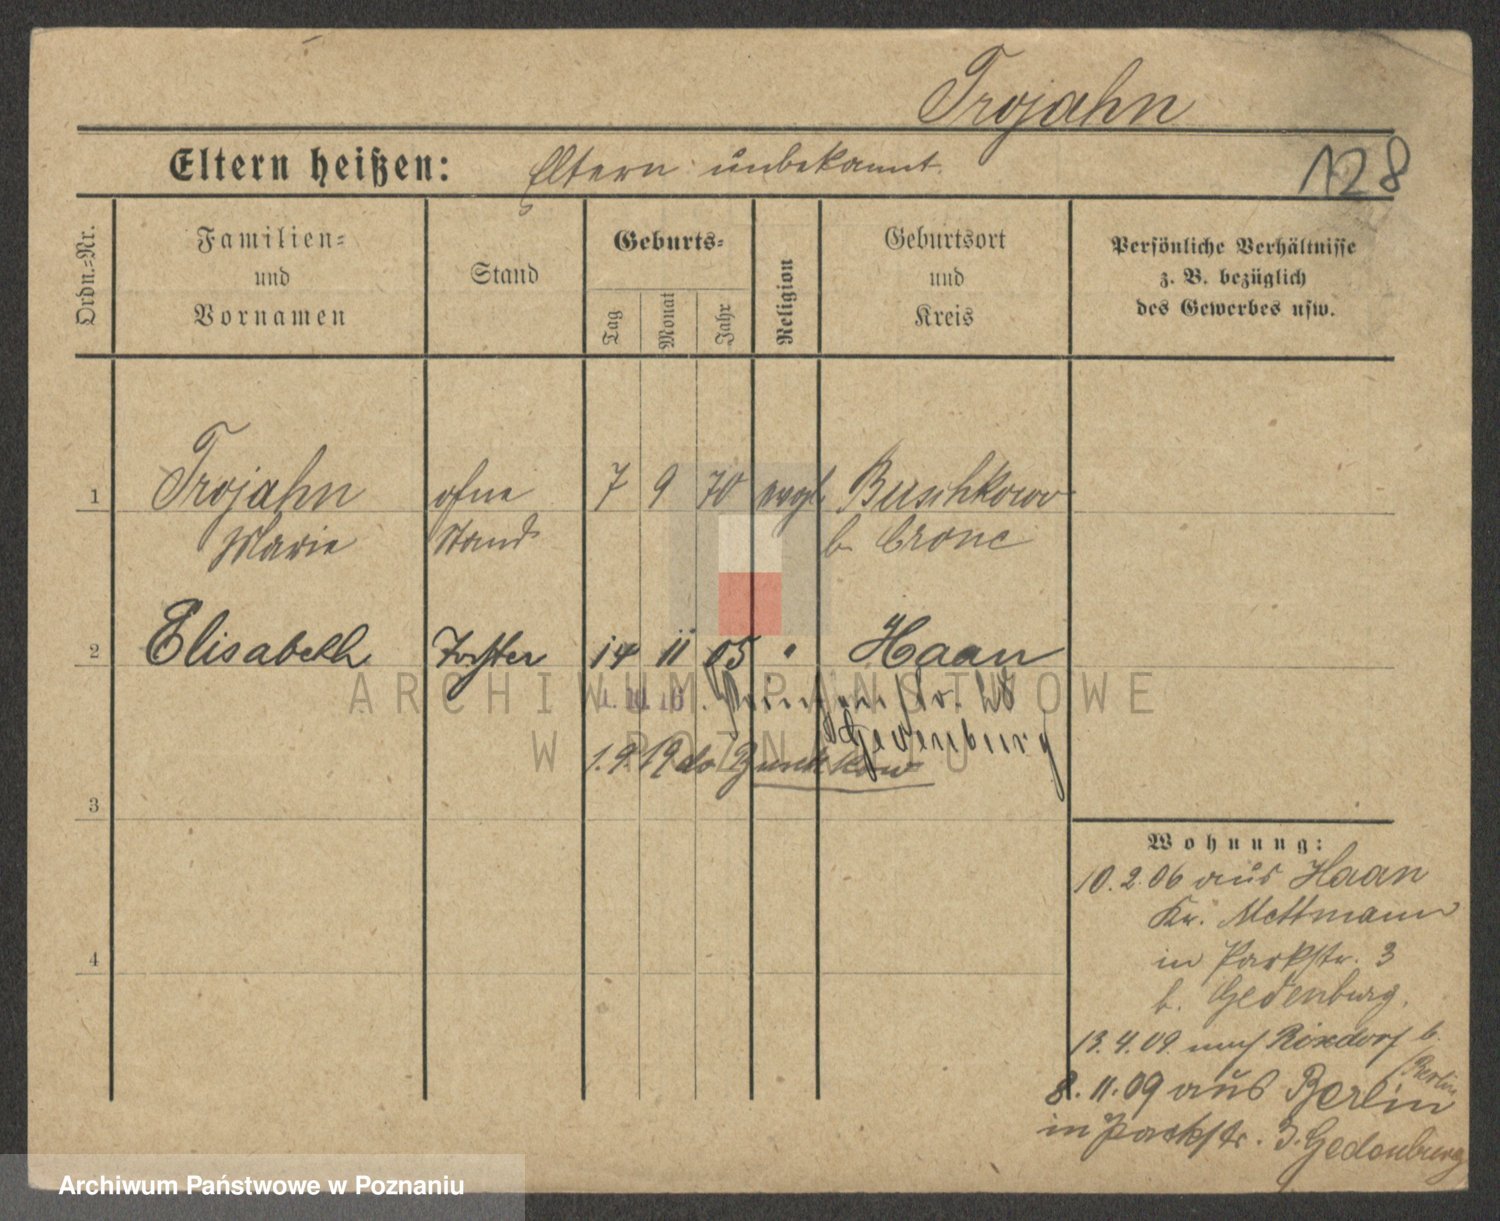 Trojahn
Eltern heißen: Eltern unbekannt.
128
Ordn.-Nr.
Familien-
und
Vornamen
Stand
Geburts-
Tag
Monat
Jahr
Religion
Geburtsort
und
Kreis
Persönliche Verhältnisse
z. B. bezüglich
des Gewerbes usw.
1 Trojahn ohne 7 9 70 evgl. Buschkowo
Marie Stand b. Crone
2 Elisabeth Tochter 14 11 05 " Haan
28
Gedenburg
1.9.19
3
4
Wohnung:
10.2.06 aus Haan
Kr. Mettmann
in Parkstr. 3
b. Gedenburg.
13.4.09. nach Rixdorf b.
Berlin
8.11.09 aus Berlin
in Parkstr. 3. Gedenburg
ARCHIWUM PAŃSTWOWE
W POZNANIU
Archiwum Państwowe w Poznaniu